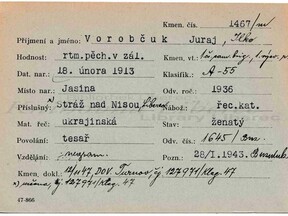 Kmen. čís. 1467/m
Příjmení a jméno: Vorobčuk Juraj, Ilko
Hodnost: rtm.pěch.v zál. Kmen. tl.:
Dat. nar.: 18. února 1913 Klasifik.: A-55
Místo nar.: Jasina Odv. roč. 1936
Příslušný: Stráž nad Nisou, Liberec Nábož. řec.kat.
Mat. řeč: ukrajinská Stav: ženatý
Povolání: tesař Odv. č.: 1645/
Vzdělání: Pozn.: 28/I.1943. Buzuluk
Kmen. dokl.: 12/11 47, DOV. Turnov, čj 127971/klag. 47
čj. 127971/klag. 47
47-866